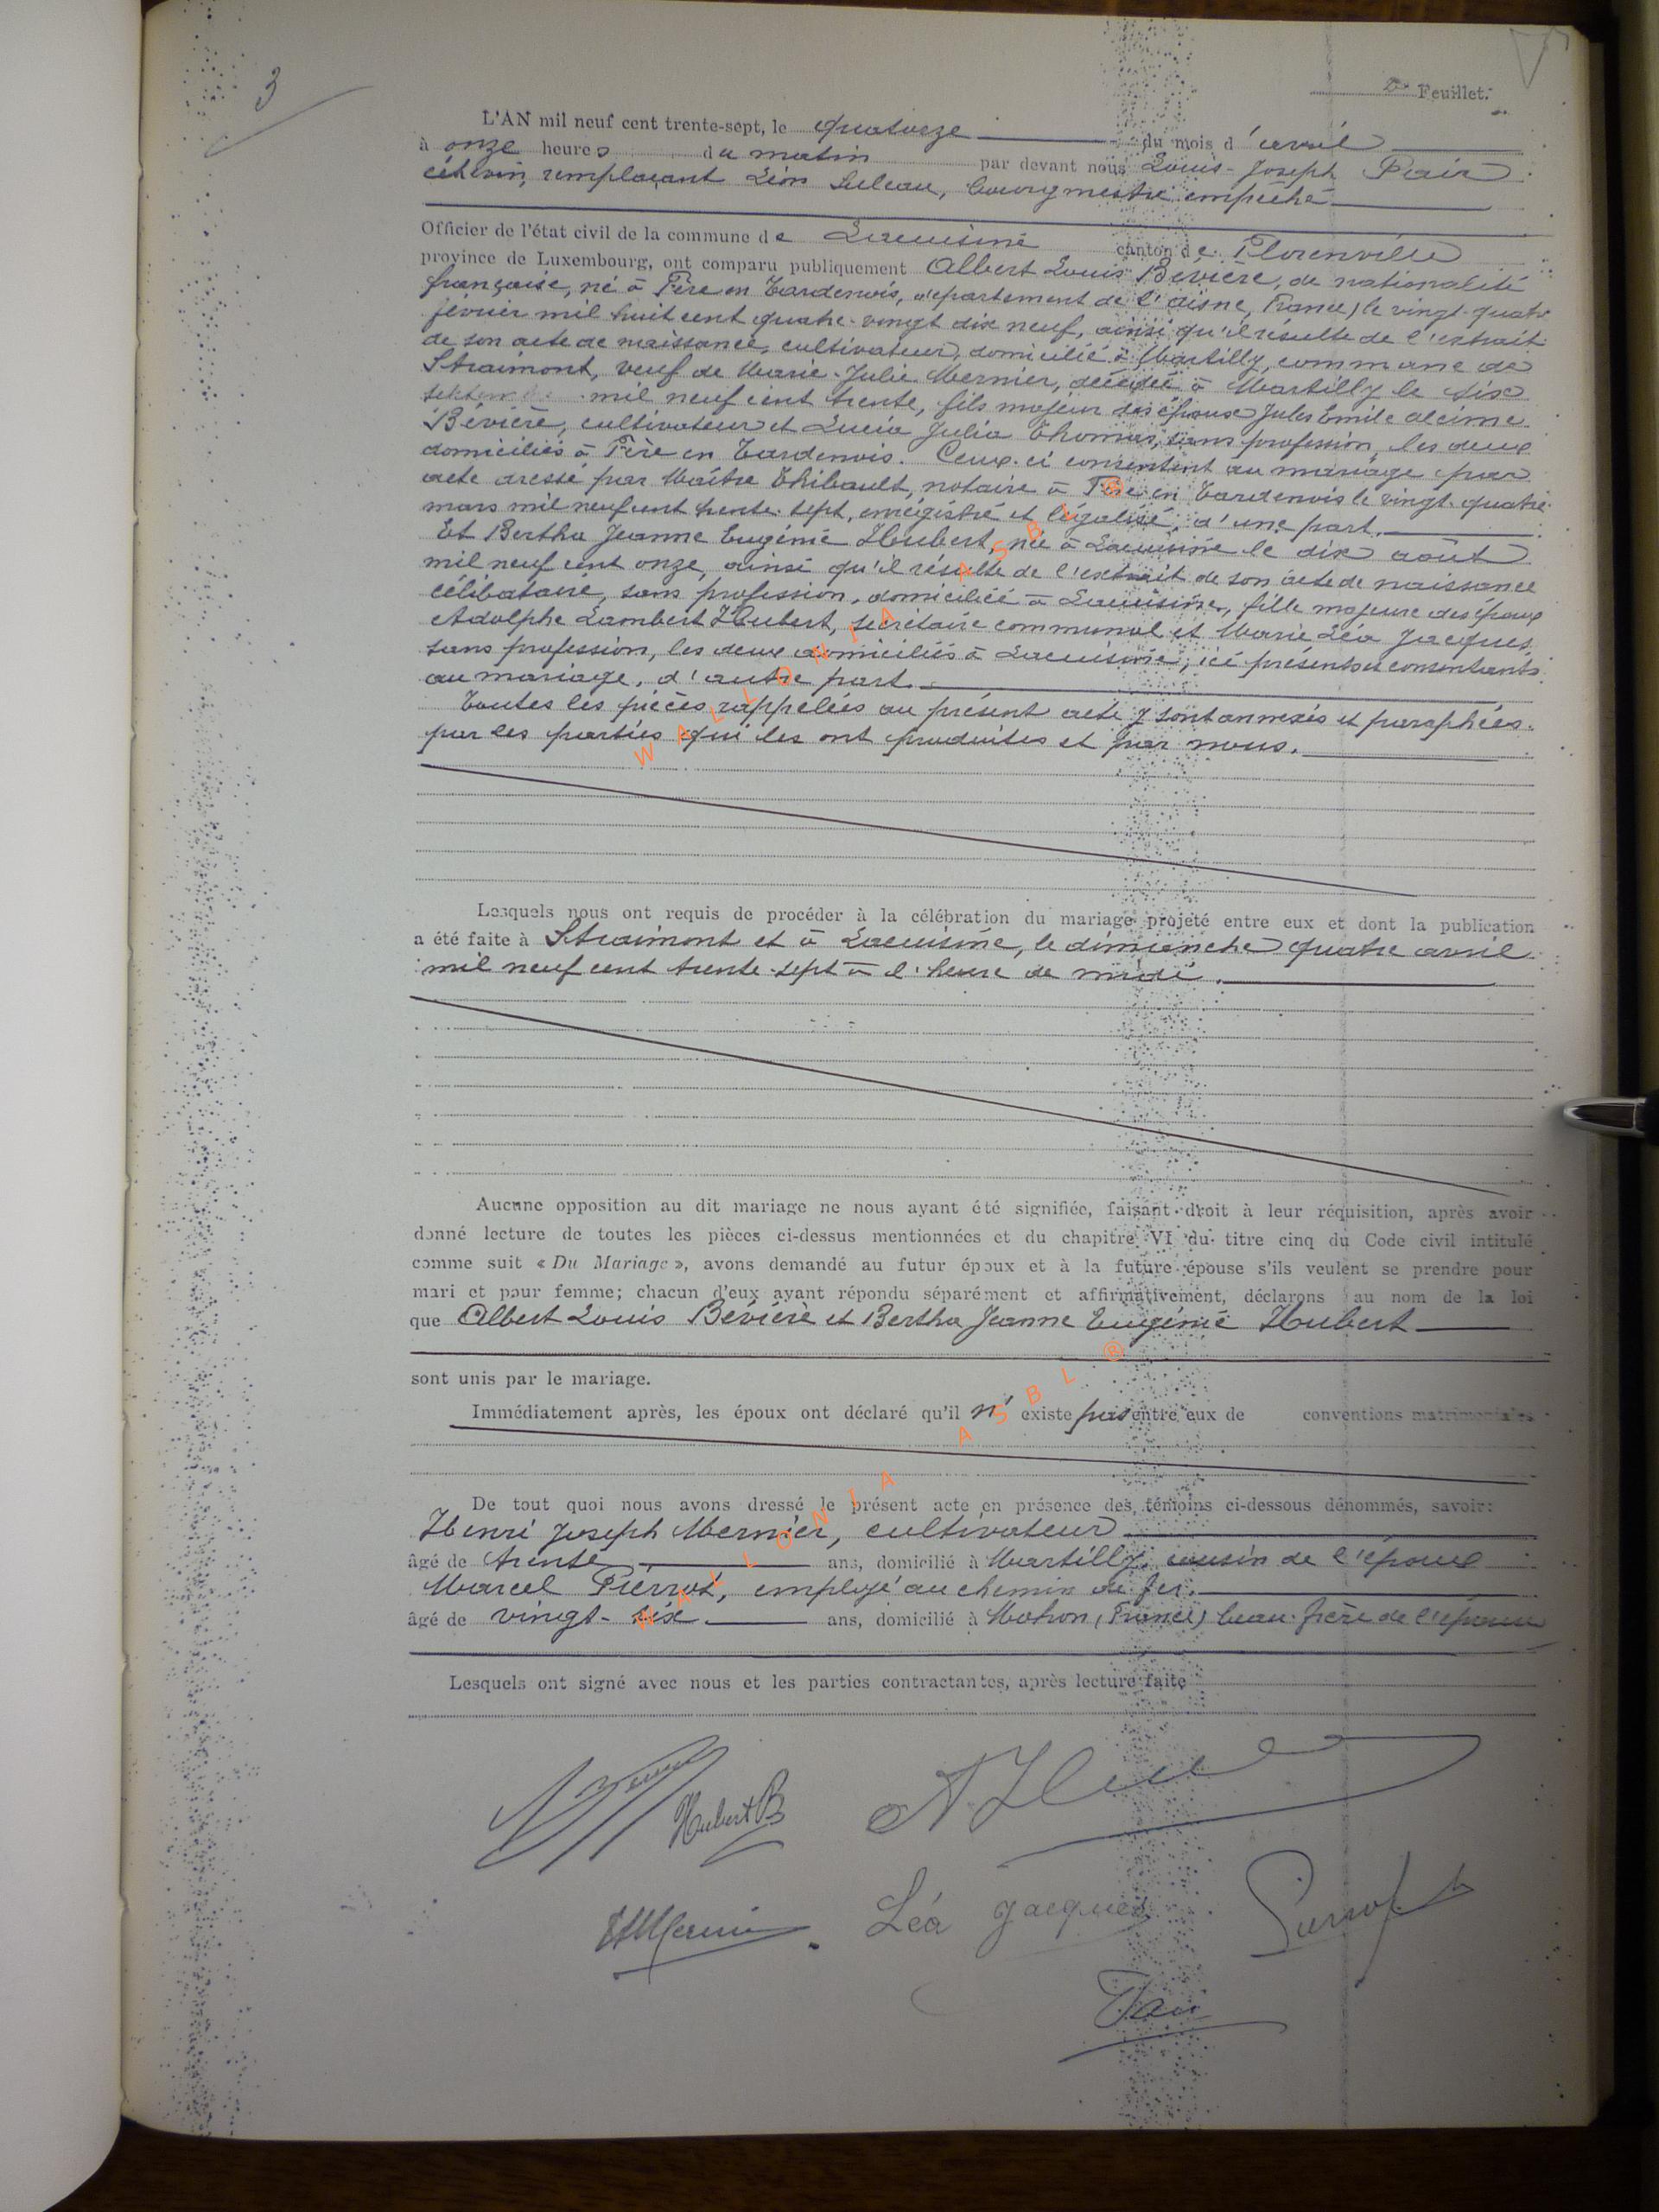 3
2e Feuillet.
L'AN mil neuf cent trente-sept, le quatorze du mois d'avril
à onze heures du matin par devant nous Louis-Joseph Pair
échevin, remplaçant Léon Suleau, bourgmestre empêché
Officier de l'état civil de la commune de Lacuisine canton de Florenville
province de Luxembourg, ont comparu publiquement Albert Louis Bévière, de nationalité
française, né à Fère en Tardenois, département de l'aisne, France) le vingt-quatre
février mil huit cent quatre-vingt dix neuf, ainsi qu'il résulte de l'extrait
de son acte de naissance, cultivateur, domicilié à Martilly, commune de
Straimont, veuf de Marie-Julie Mernier, décédée à Martilly le six
septembre mil neuf cent trente, fils majeur des époux Jules Emile alcime
Bévière, cultivateur et Lucia Julia Thomas, sans profession, les deux
domiciliés à Fère en Tardenois. Ceux-ci consentent au mariage par
acte dressé par Maître Thibault, notaire à Fère en Tardenois le vingt-quatre
mars mil neuf cent trente-sept, enregistré et légalisé, d'une part.
Et Bertha Jeanne Eugénie Hubert, née à Lacuisine le dix août
mil neuf cent onze, ainsi qu'il résulte de l'extrait de son acte de naissance
célibataire, sans profession, domiciliée à Lacuisine, fille majeure des époux
Adolphe Lambert Hubert, secrétaire communal et Marie Léa Jacques
sans profession, les deux domiciliés à Lacuisine, ici présents et consentants
au mariage, d'autre part.
Toutes les pièces rappelées au présent acte y sont annexées et paraphées
par les parties qui les ont produites et par nous.
WALLONIA ASBL ®
Lesquels nous ont requis de procéder à la célébration du mariage projeté entre eux et dont la publication
a été faite à Straimont et à Lacuisine, le dimanche quatre avril
mil neuf cent trente-sept à l'heure de midi.
Aucune opposition au dit mariage ne nous ayant été signifiée, faisant droit à leur réquisition, après avoir
donné lecture de toutes les pièces ci-dessus mentionnées et du chapitre VI du titre cinq du Code civil intitulé
comme suit « Du Mariage », avons demandé au futur époux et à la future épouse s'ils veulent se prendre pour
mari et pour femme; chacun d'eux ayant répondu séparément et affirmativement, déclarons au nom de la loi
que Albert Louis Bévière et Bertha Jeanne Eugénie Hubert
sont unis par le mariage.
Immédiatement après, les époux ont déclaré qu'il n'existe pas entre eux de conventions matrimoniales
De tout quoi nous avons dressé le présent acte en présence des témoins ci-dessous dénommés, savoir:
Henri Joseph Mernier, cultivateur
âgé de trente ans, domicilié à Martilly, cousin de l'époux
Marcel Pierrot, employé au chemin de fer.
âgé de vingt-six ans, domicilié à Mohon, (France) beau-frère de l'épouse
WALLONIA ASBL ®
Lesquels ont signé avec nous et les parties contractantes, après lecture faite
Hubert B
A. Hubert
HMernier
Léa Jacques
Pierrot
Pair